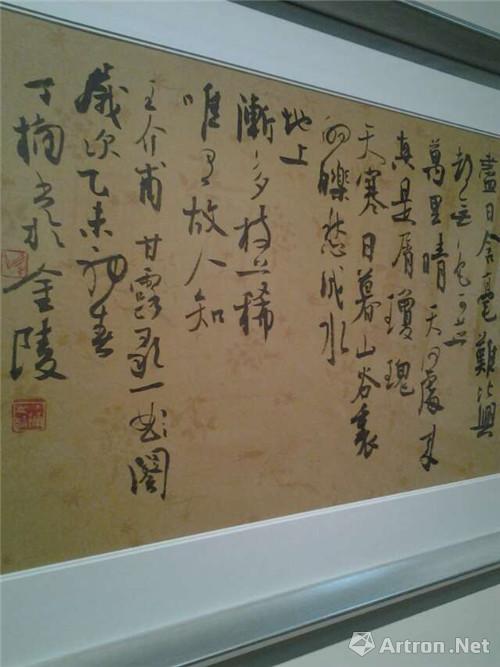 盡日含毫難比興
都無色可並
萬里晴天何處來
真是屑瓊瑰
天寒日暮山谷裏
的皪愁成水
地上
漸多枝上稀
唯有故人知
王介甫甘露歌一
歲次乙未初春
丁楠書於金陵
Artron.Net